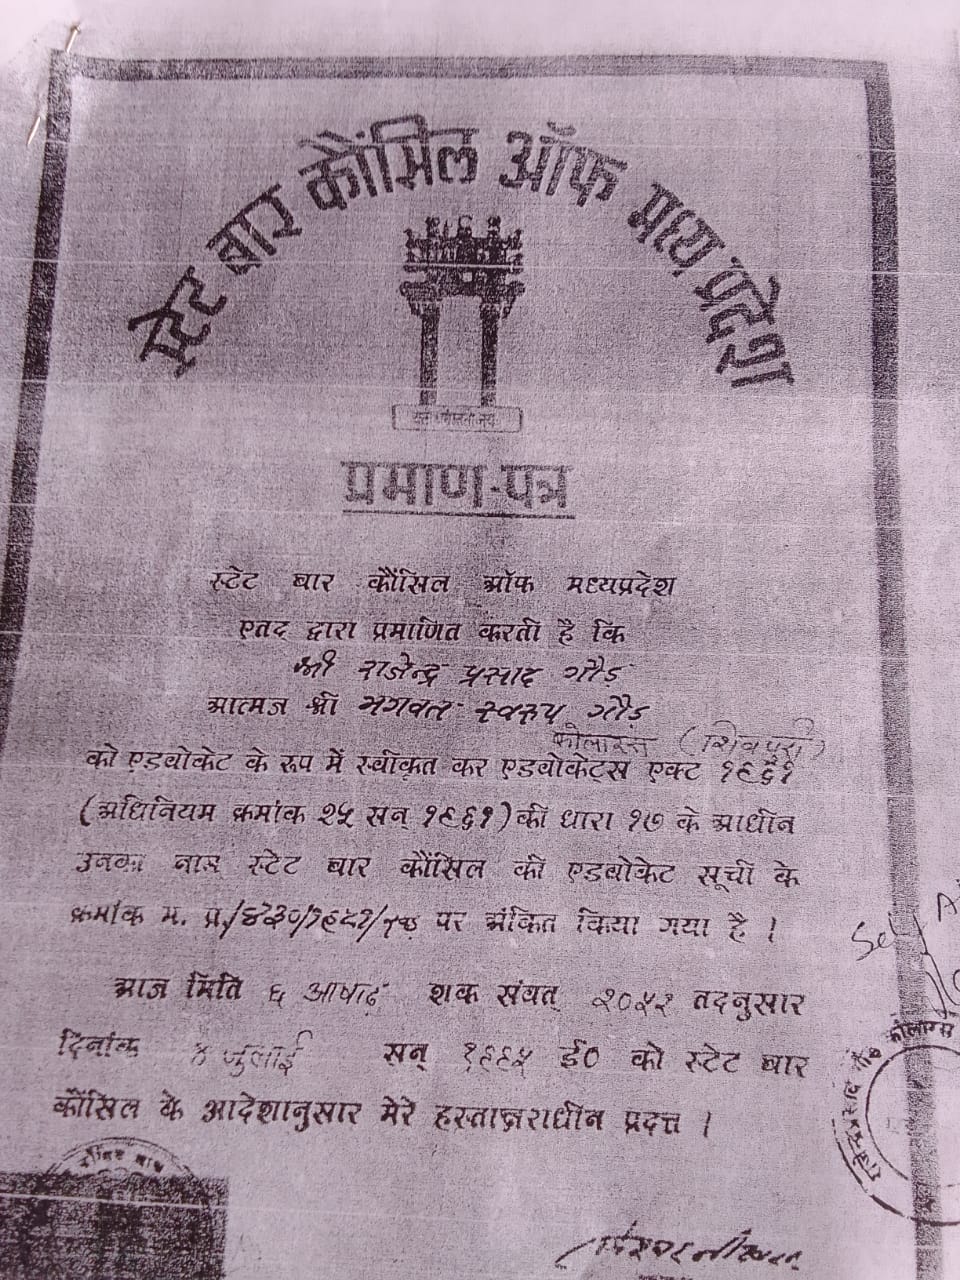 स्टेट बार कौंसिल ऑफ मध्य प्रदेश
प्रमाण-पत्र
स्टेट बार कौंसिल ऑफ मध्यप्रदेश
एतद द्वारा प्रमाणित करती है कि
श्री राजेन्द्र प्रसाद गौड़
आत्मज श्री भगवत स्वरूप गौड़
कोलारस (शिवपुरी)
को एडवोकेट के रूप में स्वीकृत कर एडवोकेट्स एक्ट १९६१
(अधिनियम क्रमांक २५ सन् १९६१) की धारा १७ के आधीन
उनका नाम स्टेट बार कौंसिल की एडवोकेट सूची के
क्रमांक म. प्र. पर अंकित किया गया है ।
आज मिति ६ आषाढ़ शक संवत् तदनुसार
दिनांक जुलाई सन् १९९५ ई० को स्टेट बार
कौंसिल के आदेशानुसार मेरे हस्ताक्षराधीन प्रदत्त ।
Self
राजेन्द्र प्रसाद गौड़ कोलारस